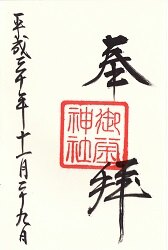 奉拝
御神社
平成三十年十一月二十九日